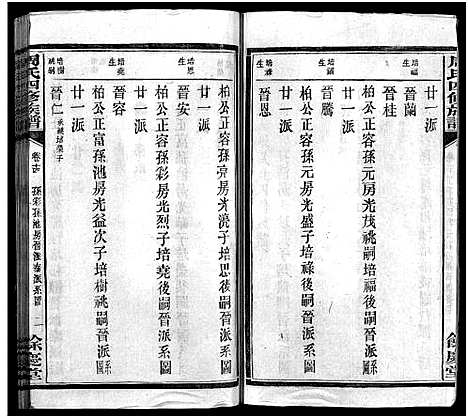 周氏四修族譜
廿一派
柏公正容孫元房光茂祧嗣培福後嗣晉派系圖
培福
晉蘭
晉桂
廿一派
柏公正容孫元房光盛子培祿後嗣晉派系圖
培祿
晉騰
晉恩
餘慶堂
廿一派
柏公正容孫元房光流子培思後嗣晉派系圖
培思
晉安
廿一派
柏公正富孫彩房光烈子培堯後嗣晉派系圖
培堯
晉容
廿一派
柏公正富孫池房光益次子培樹祧嗣晉派系圖
培樹祧嗣
晉仁
承祧培榮子
周氏四修族譜
孫彩孫池房晉派系圖
二
餘慶堂